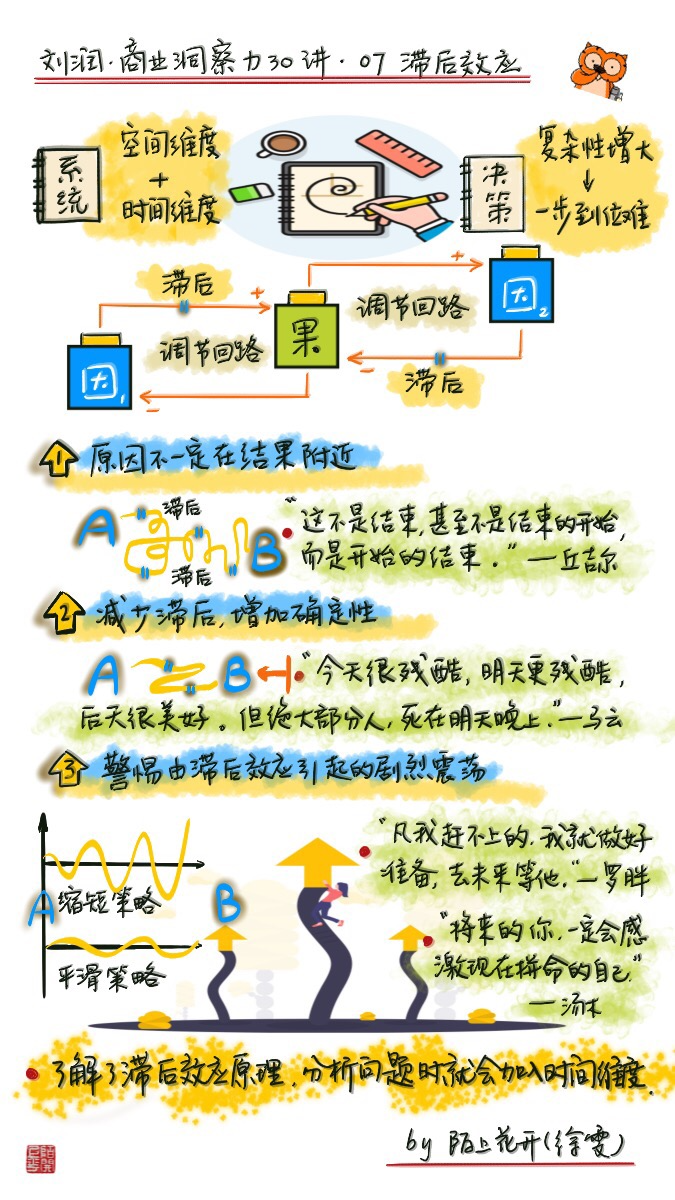 刘润·商业洞察力30讲·07 滞后效应
系统
空间维度
+
时间维度
决策
复杂性增大
↓
一步到位难
滞后
+
+
因2
果
调节回路
调节回路
因1
-
-
滞后
1 原因不一定在结果附近
A
滞后
滞后
B
“这不是结束,甚至不是结束的开始,
而是开始的结束。”—丘吉尔
2 减少滞后,增加确定性
A
B
“今天很残酷,明天更残酷,
后天很美好。但绝大部分人,死在明天晚上。”—马云
3 警惕由滞后效应引起的剧烈震荡
A
缩短策略
B
平滑策略
“凡我赶不上的,我就做好
准备,去未来等他。”—罗胖
“将来的你,一定会感
激现在拼命的自己”
—汤木
了解了滞后效应原理,分析问题时就会加入时间维度.
by 陌上花开(徐雯)